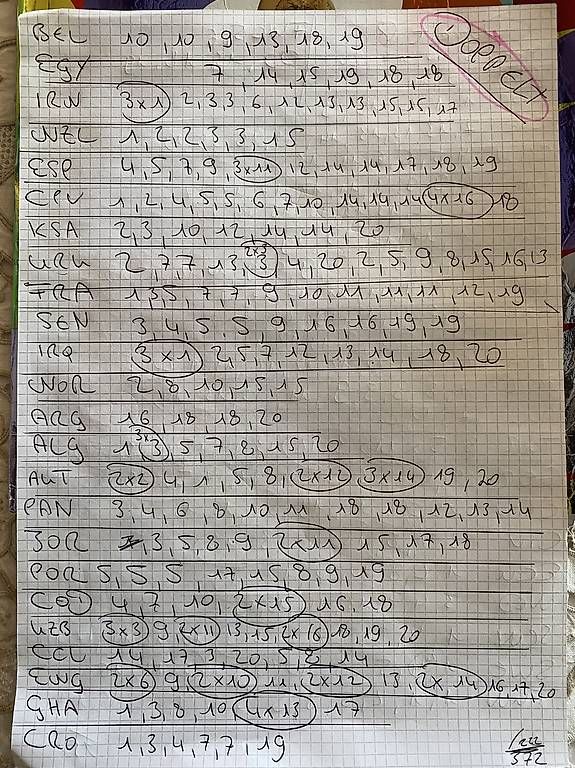 BEL 10, 10, 9, 13, 18, 19
DOPPELT
EGY 7, 14, 15, 19, 18, 18
IRN 3x1 2, 3, 3, 6, 12, 13, 13, 15, 15, 17
NZL 1, 2, 2, 3, 3, 15
ESP 4, 5, 7, 9, 3x11, 12, 14, 14, 17, 18, 19
CPV 1, 2, 4, 5, 5, 6, 7, 10, 14, 14, 14 4x16 18
KSA 2, 3, 10, 12, 14, 14, 20
URU 2, 7, 7, 13, 2x3 4, 20, 2, 5, 9, 8, 15, 16, 13
FRA 1, 3, 5, 7, 7, 9, 10, 11, 11, 11, 12, 19
SEN 3, 4, 5, 5, 9, 16, 16, 19, 19
IRQ 3x1 2, 5, 7, 12, 13, 14, 18, 20
NOR 2, 8, 10, 15, 15
ARG 16, 18, 18, 20
ALG 1 3x3, 5, 7, 8, 15, 20
AUT 2x2 4, 1, 5, 8, 2x12, 3x14 19, 20
PAN 3, 4, 6, 8, 10, 11, 18, 18, 12, 13, 14
JOR 3, 5, 8, 9, 2x11 15, 17, 18
POR 5, 5, 5, 17, 15, 8, 9, 19
4, 7, 10, 2x15 16, 18
UZB 3x3 9, 2x11 13, 15, 2x16 18, 19, 20
14, 17, 3, 20, 5, 8, 14
ENG 2x6 9, 2x10 11, 2x12 13, 2x14 16, 17, 20
GHA 1, 3, 8, 10, 4x13 17
CRO 1, 3, 4, 7, 7, 19
572